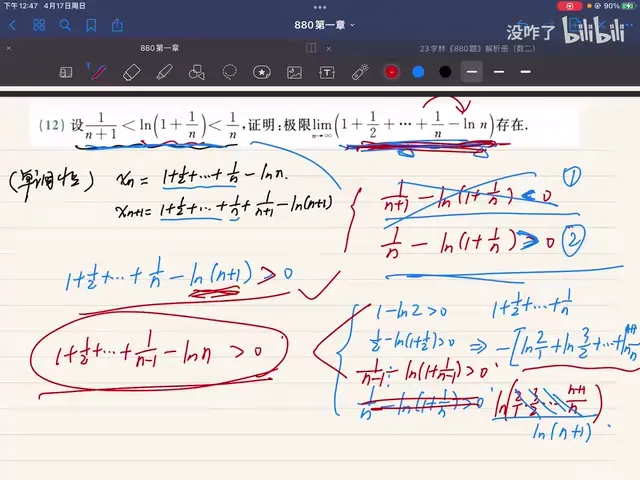 下午12:47 4月17日周日
90%
880第一章
没咋了 bilibili
880第一章
23字林《880题》解析册（数二）
(12) 设 1/(n+1) < ln(1+1/n) < 1/n, 证明: 极限 lim n→∞ (1+1/2+⋯+1/n-ln n) 存在.
(单调性) xn = 1+1/2+⋯+1/n - ln n.
xn+1 = 1+1/2+⋯+1/n+1/(n+1) - ln(n+1)
1/(n+1) - ln(1+1/n) < 0 ①
1/n - ln(1+1/n) > 0 ②
1+1/2+⋯+1/n - ln(n+1) > 0
1+1/2+⋯+1/(n-1) - ln n > 0
1 - ln2 > 0 1+1/2+⋯+1/n
1/2 - ln(1+1/2) > 0 ⇒ -[ln 2/1 + ln 3/2 + ⋯ + ln (n+1)/n
1/(n-1) - ln(1+1/(n-1)) > 0
1/n - ln(1+1/n) > 0 ln(2/1 · 3/2 ⋯ (n+1)/n)
ln(n+1)